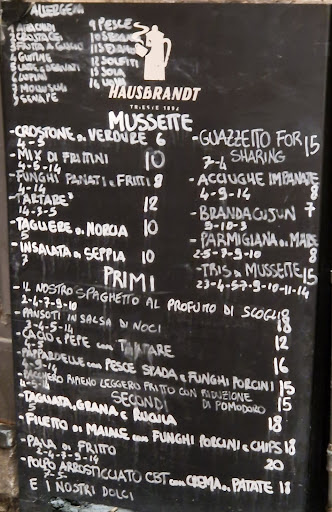 ALLERGENI
1 ARACHIDI
2 CROSTACEI
3 FRUTTA A GUSCIO
4 GLUTINE
5 LATTE e DERIVATI
6 LUPINI
7 MOLLUSCHI
8 SENAPE
9 PESCE
10 SEDANO
12 SOLFITI
13 SOIA
14 UOVA
HAUSBRANDT
TRIESTE 1892
MUSSETTE
-CROSTONE di VERDURE 6
4-5
-MIX DI FRITTINI 10
4-5-14
-FUNGHI PANATI e FRITTI 8
4-14
-TARTARE 12
14-3-5
-TAGLIERE di NORCIA 10
5
-INSALATA di SEPPIA 10
7
-GUAZZETTO FOR SHARING 15
7-4
-ACCIUGHE IMPANATE 8
4-9-14
-BRANDACUJUN 7
9-10-3
-PARMIGIANA di MARE 8
2-5-7-9-10
-TRIS di MUSSETTE 15
2-3-4-5-7-9-10-11-14
PRIMI
-IL NOSTRO SPAGHETTO AL PROFUMO DI SCOGLIO 18
2-4-7-9-10
-PANSOTI IN SALSA DI NOCI 12
3-4-5-14
-CACIO e PEPE con TARTARE 16
4-5
-PAPPARDELLE con PESCE SPADA e FUNGHI PORCINI 15
-PACCHERO RIPIENO LEGGERO FRITTO CON RIDUZIONE DI POMODORO 15
4-5-14
SECONDI
-TAGLIATA, GRANA e RUCOLA 18
5
-FILETTO DI MAIALE con FUNGHI PORCINI e CHIPS 18
-PALA DI FRITTO 20
2-4-7-9-14
-POLPO ARROSTICCIATO CBT con CREMA di PATATE 18
7-5
E I NOSTRI DOLCI